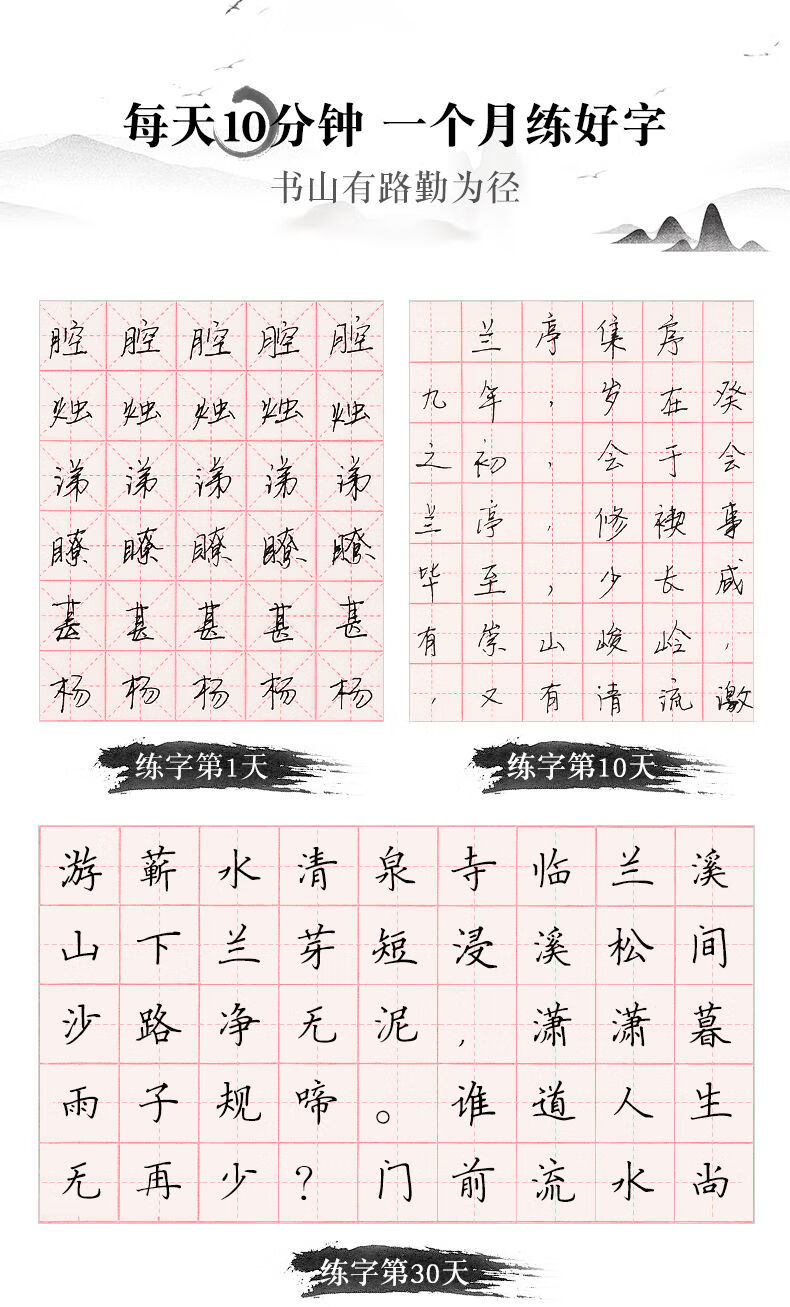 每天10分钟 一个月练好字
书山有路勤为径
腔腔腔腔腔
烛烛烛烛烛
涕涕涕涕涕
瞭瞭瞭瞭瞭
甚甚甚甚甚
杨杨杨杨杨
练字第1天
兰亭集序
九年，岁在癸
之初，会于会
兰亭，修禊事
毕至，少长咸
有崇山峻岭，
，又有清流激
练字第10天
游蕲水清泉寺临兰溪
山下兰芽短浸溪松间
沙路净无泥，潇潇暮
雨子规啼。谁道人生
无再少？门前流水尚
练字第30天